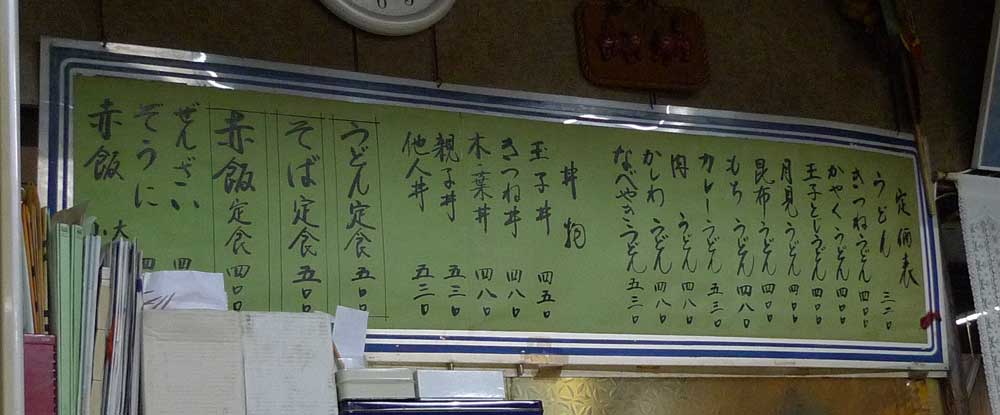 定価表
うどん 三二〇
きつねうどん 四〇〇
かやくうどん 四〇〇
玉子としうどん 四〇〇
月見うどん 四〇〇
昆布うどん 四〇〇
もちうどん 四八〇
カレーうどん 五三〇
肉うどん 四八〇
かしわうどん 四八〇
なべやきうどん 五三〇
丼物
玉子丼 四五〇
きつね丼 四八〇
木葉丼 四八〇
親子丼 五三〇
他人丼 五三〇
うどん定食 五〇〇
そば定食 五〇〇
赤飯定食 四〇〇
ぜんざい 四
ぞうに 四
赤飯 大